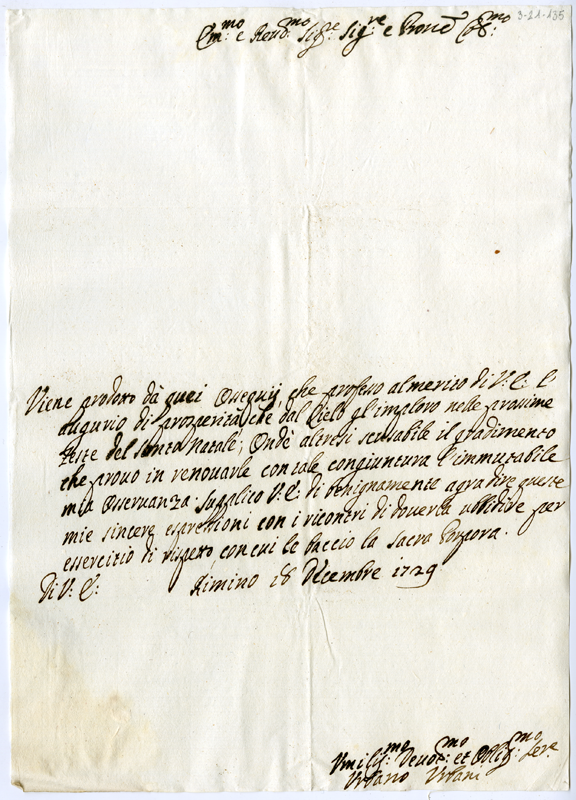 3-21-135
Em:mo e Revd:mo Sig:re Sig:re e Prone Col:mo
Viene prodotto dà quei Ossequij, che professo al merito di V: E: l'
augurio di prosperità, che dal Cielo gl'imploro nelle prossime
feste del Santo Natale; Onde altresi scusabile il gradimento
che provo in renovarle con tale congiuntura l'immutabile
mia Osservanza. Supplico V: E: di benignamente agradire queste
mie sincere espressioni con i riscontri di doverla ubbidire per
essercitio di rispetto, con cui le baccio la Sacra Porpora.
Di V: E:
Rimino 18 Decembre 1729
Vmilis:mo Devot:mo et Oblig:mo Sere
Vrbano Vrbani